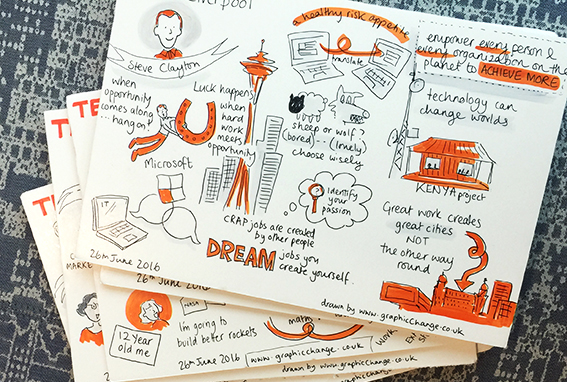 Liverpool
Steve Clayton
when
opportunity
comes along
hang on!
Luck happens
when
hard
work
meets
opportunity
Microsoft
IT
26th June 2016
a healthy risk appetite
translate
sheep or wolf?
(bored)... (lonely)
choose wisely
identify
your
passion
CRAP jobs are created
by other people
DREAM jobs you
create yourself.
empower every person &
every organization on the
planet to ACHIEVE MORE
technology can
change worlds
KENYA project
Great work creates
great cities
NOT
the other way
round
drawn by www.graphicchange.co.uk
TE
MARKE
12 year
old me
26th June 2016
26th June 2016
NASA
I'm going to
build better rockets
maths
www.graphicchange.co.uk
drawn by www.graphicchange.co.uk
Work